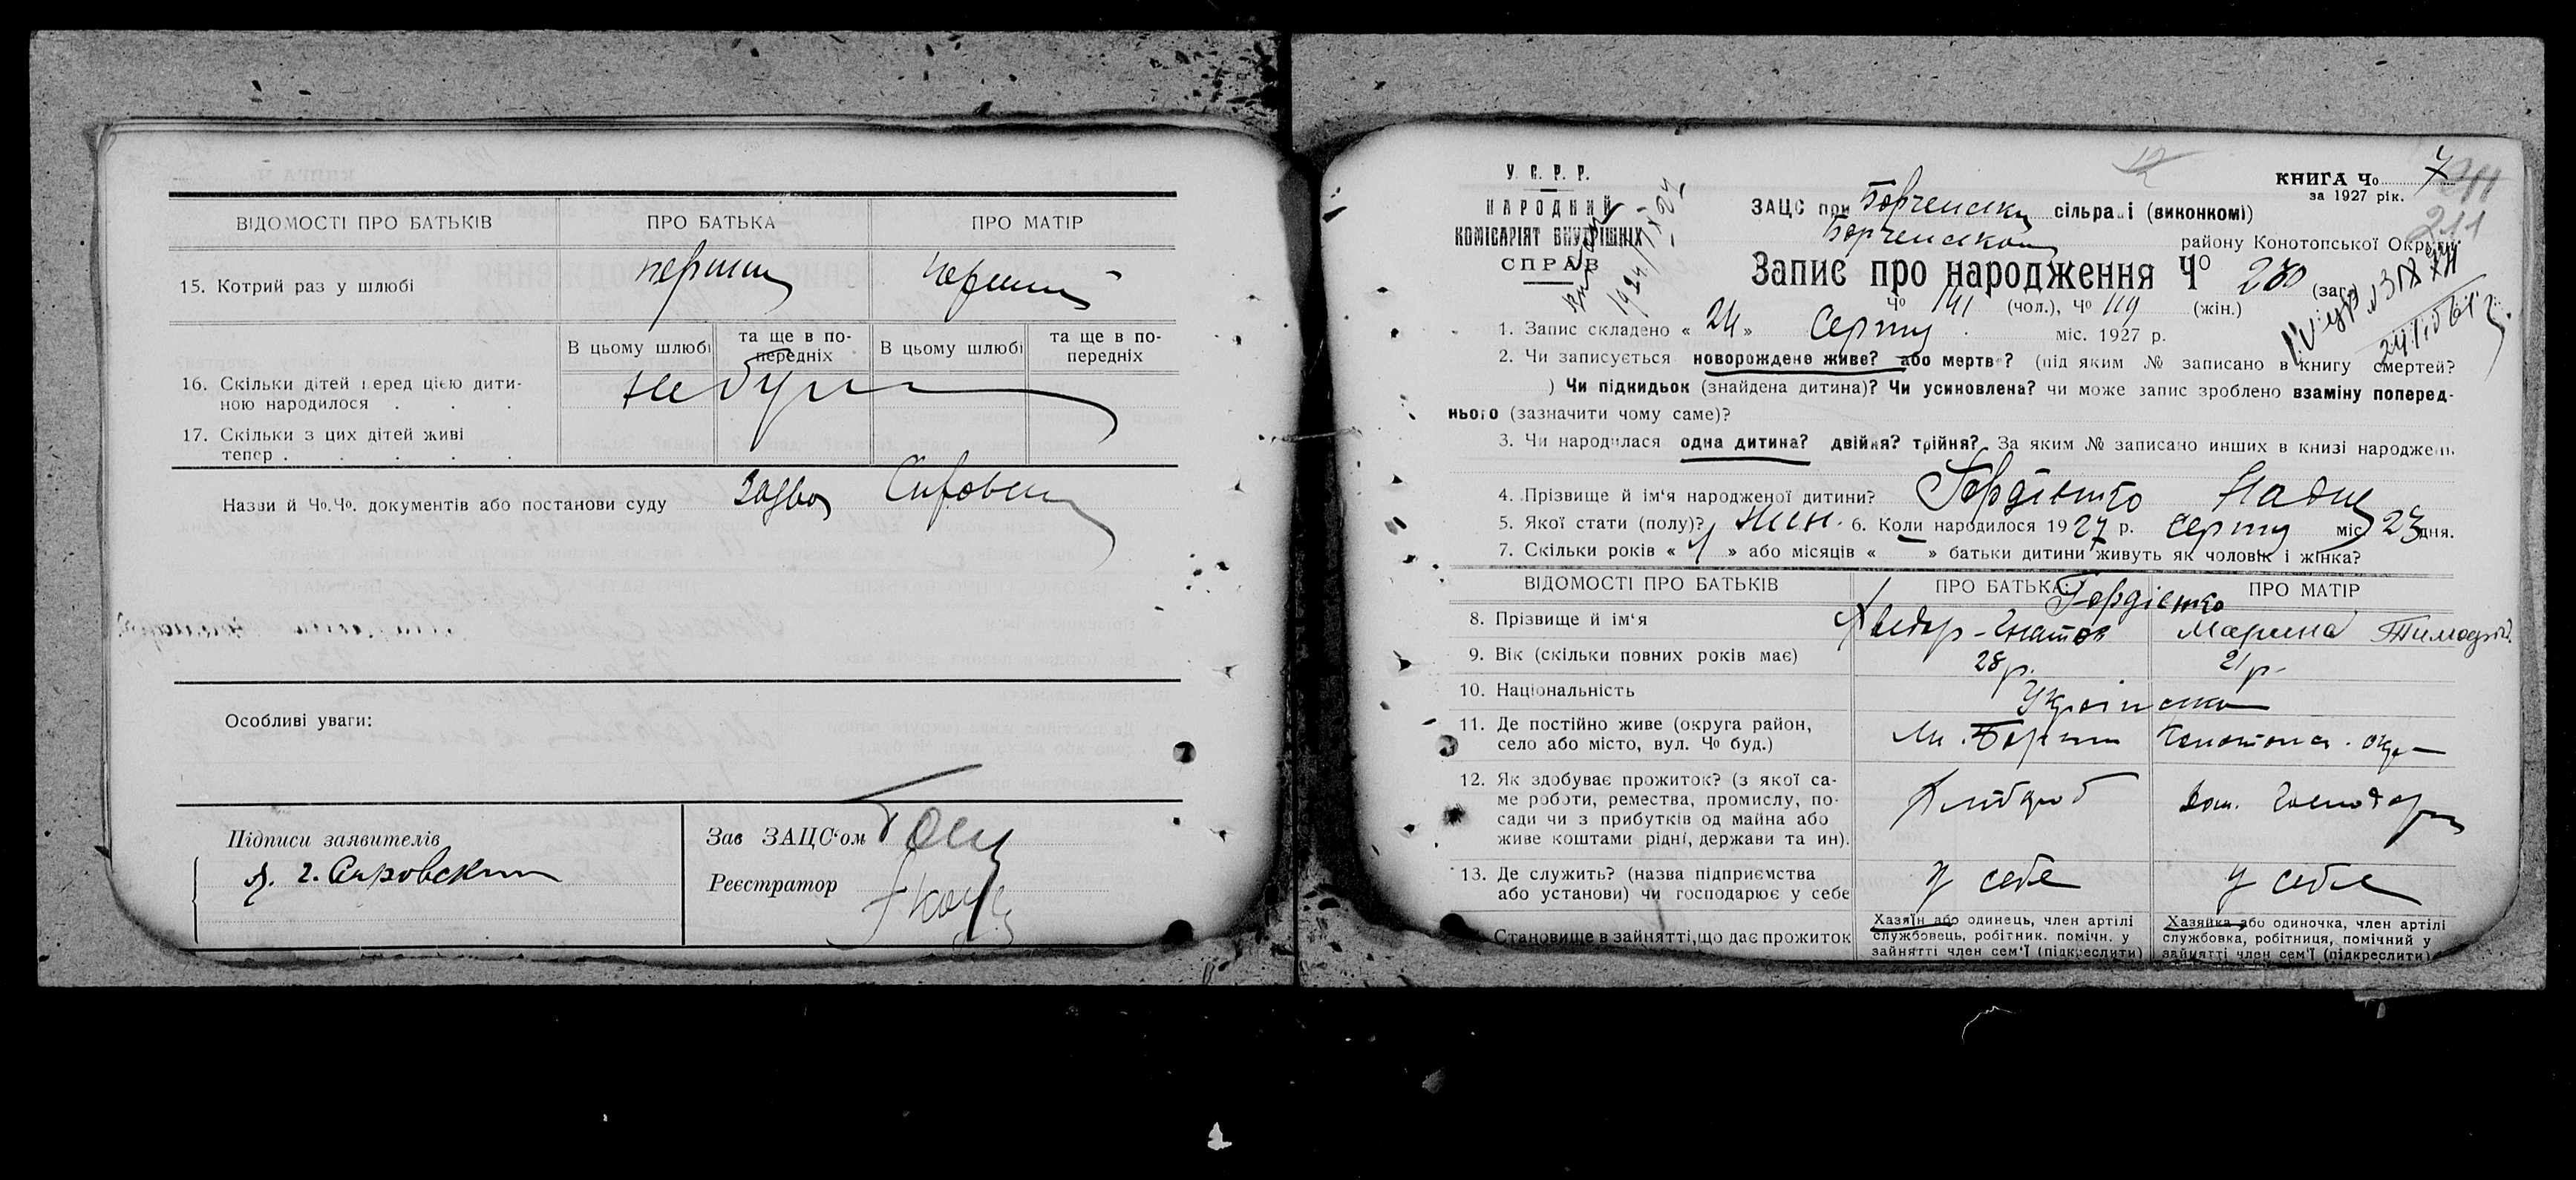 ВІДОМОСТІ ПРО БАТЬКІВ ПРО БАТЬКА ПРО МАТІР
15. Котрий раз у шлюбі перший перший
В цьому шлюбі та ще в по-передніх В цьому шлюбі та ще в по-передніх
16. Скільки дітей перед цією дити-
ною народилося . . . не було
17. Скільки з цих дітей живі
тепер . . . . .
Назви й Чо.Чо. документів або постанови суду
Особливі уваги:
Підписи заявителів
Зав ЗАЦС‘ом
Реєстратор
У. С. Р. Р.
НАРОДНИЙ
КОМІСАРІЯТ ВНУТРІШНІХ
СПРАВ
КНИГА Чо 7
за 1927 рік.
211
ЗАЦС при Борзенській сільраді (виконкомі)
Борзенського району Конотопської Округи
Запис про народження Чо 260 (заг.)
Чо 141 (чол.), Чо 119 (жін.)
1. Запис складено « 24 » Серпня міс. 1927 р.
2. Чи записується новорождене живе? або мертве? (під яким № записано в книгу смертей?
) Чи підкидьок (знайдена дитина)? Чи усиновлена? чи може запис зроблено взаміну поперед-
нього (зазначити чому саме)?
3. Чи народилася одна дитина? двійня? трійня? За яким № записано инших в книзі народжень
4. Прізвище й ім‘я народженої дитини? Гордієнко Надія
5. Якої стати (полу)? жін. 6. Коли народилося 1927 р. Серпня міс 23 дня.
7. Скільки років « 1 » або місяців « » батьки дитини живуть як чоловік і жінка?
ВІДОМОСТІ ПРО БАТЬКІВ ПРО БАТЬКА ПРО МАТІР
Гордієнко
8. Прізвище й ім‘я Хведор Гнатов Марина
9. Вік (скільки повних років має) 28 р. 21 р.
10. Національність Українська
11. Де постійно живе (округа район,
село або місто, вул. Чо буд.) м. Борзна Конотопс. окр
12. Як здобуває прожиток? (з якої са-
ме роботи, ремества, промислу, по-
сади чи з прибутків од майна або
живе коштами рідні, держави та ин). Хлібороб Дом. господар
13. Де служить? (назва підприємства
або установи) чи господарює у себе у себе у себе
Становище в зайнятті, що дає прожиток
Хазяїн або одинець, член артілі
службовець, робітник. помічн. у
зайнятті член сем‘ї (підкреслити)
Хазяйка або одиночка, член артілі
службовка, робітниця, помічний у
зайнятті член сем‘ї (підкреслити)